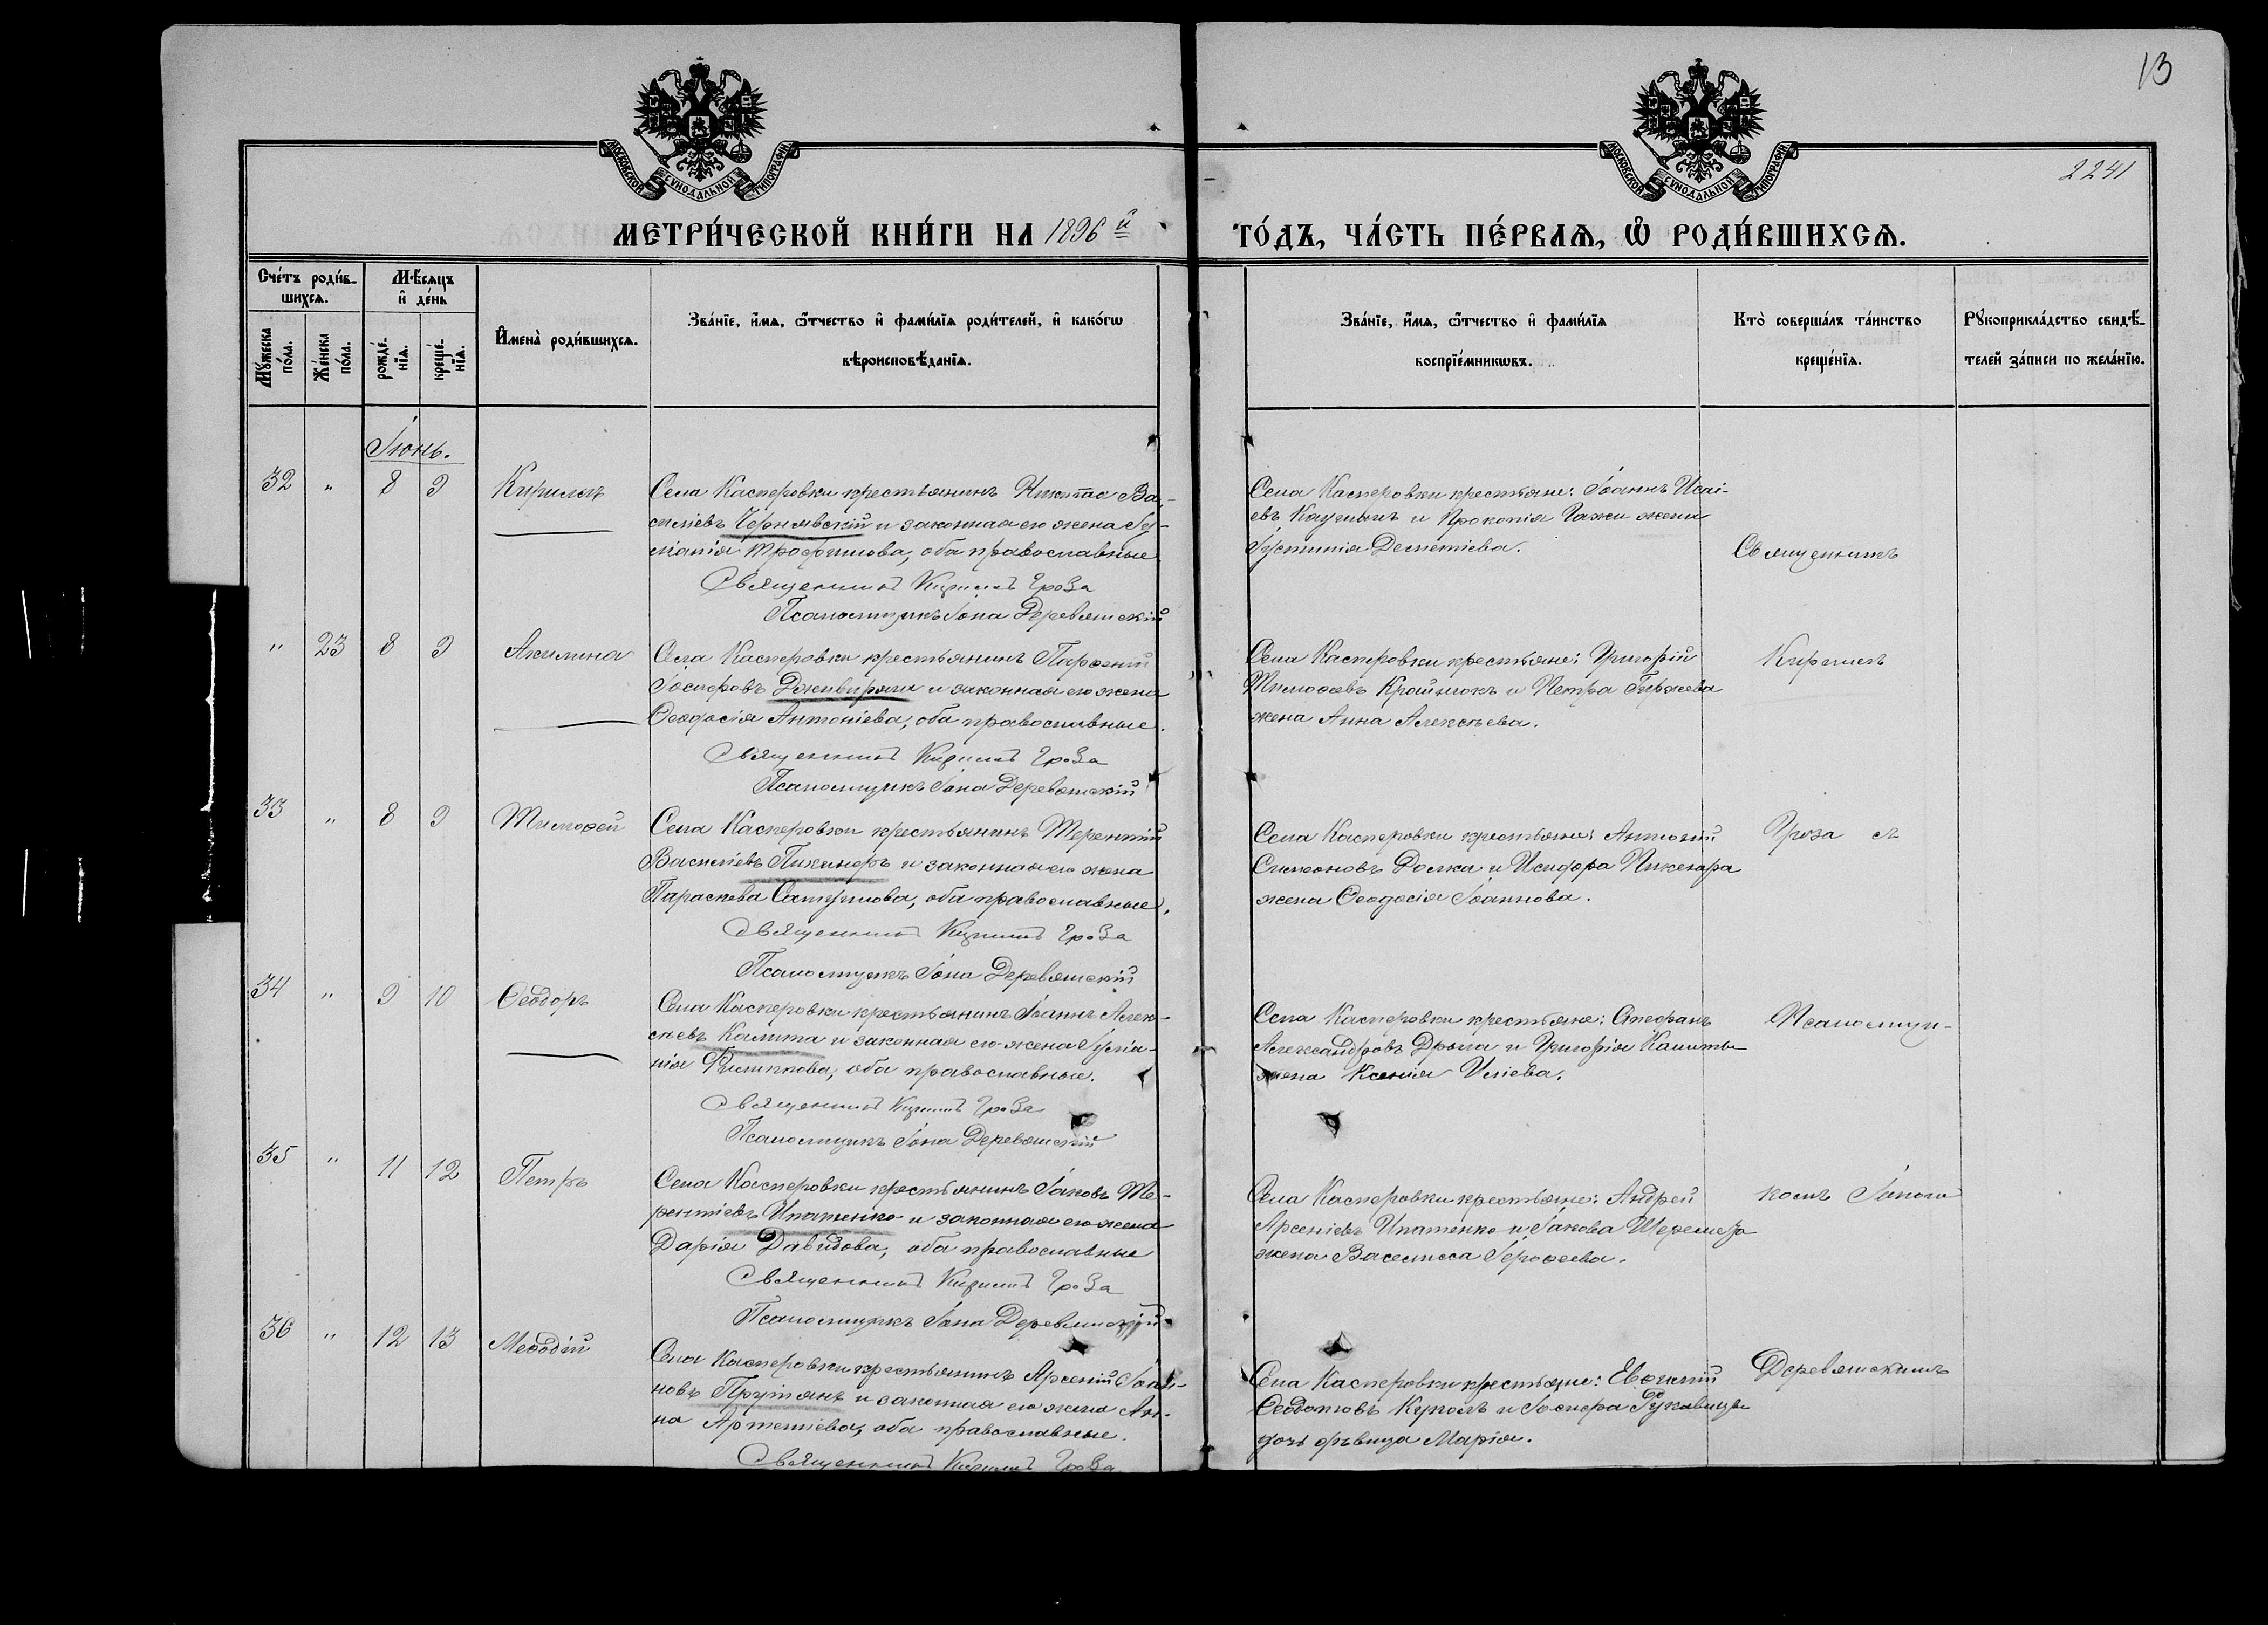 13
МОСКОВСКОЙ СѴНОДАЛЬНОЙ ТИПОГРАФІИ
МОСКОВСКОЙ СѴНОДАЛЬНОЙ ТИПОГРАФІИ
2241
МЕТРИ́ЧЕСКОЙ КНИ́ГИ НА 1896 й
ГО́ДЪ, ЧА́СТЬ ПЕ́РВАѦ, Ѽ РОДИ́ВШИХСѦ.
Сче́тъ роди́в-
шихсѧ.
Мꙋ́жеска по́ла.
Же́нска по́ла.
Мѣ́сѧцъ
и҆ де́нь
рожде́-
нїѧ.
креще́-
нїѧ.
И҆мена̀ роди́вшихсѧ.
Зва́нїе, и҆́мѧ, ѻ҆́тчество и҆ фами́лїѧ роди́телей, и҆ како́гѡ
вѣроисповѣ́данїѧ.
Зва́нїе, и҆́мѧ, ѻ҆́тчество и҆ фами́лїѧ
воспрїе́мникѡвъ.
Кто̀ соверша́лъ та́инство
креще́нїѧ.
Рꙋкоприкла́дство свидѣ́-
телей за́писи по жела́нїю.
Іюнь.
32 " 8 9 Кириллъ
Села Касперовки крестьянинъ Никита Ва-
силіевъ Чернявскій и законная его жена Іу-
ліанія Трофимова, оба православные
Священникъ Кириллъ Гроза
Псаломщикъ Іона Деревянскій
Села Касперовки крестьяне: Іоаннъ Исаі-
евъ и Прокопія жена
Іустинія Дементіева.
Священникъ
" 23 8 9 Акилина
Села Касперовки крестьянинъ Парѳеній
Іосифовъ и законная его жена
Ѳеодосія Антоніева, оба православные.
Священникъ Кириллъ Гроза
Псаломщикъ Іона Деревянскій
Села Касперовки крестьяне: Григорій
Тимоѳеевъ Крайнюкъ и Петра
жена Анна Алексѣева.
Кириллъ
33 " 8 9 Тимоѳей
Села Касперовки крестьянинъ Терентій
Василіевъ Пижинеръ и законная его жена
Параскева оба православные.
Священникъ Кириллъ Гроза
Псаломщикъ Іона Деревянскій
Села Касперовки крестьяне: Антоній
Симеоновъ и Исидора
жена Ѳеодосія Іоаннова.
Гроза съ
34 " 9 10 Ѳеодоръ
Села Касперовки крестьянинъ Іоаннъ Алек-
сѣевъ Калита и законная его жена Іуліа-
нія Филиппова, оба православные.
Священникъ Кириллъ Гроза
Псаломщикъ Іона Деревянскій
Села Касперовки крестьяне: Стефанъ
Александровъ и Григорія Калиты
жена Ксенія Иліева.
Псаломщи-
35 " 11 12 Петръ
Села Касперовки крестьянинъ Іаковъ Те-
рентіевъ Ипатенко и законная его жена
Дарія Давидова, оба православные
Священникъ Кириллъ Гроза
Псаломщикъ Іона Деревянскій
Села Касперовки крестьяне: Андрей
Арсеніевъ Ипатенко и Іакова
жена Василисса Іероѳеева.
комъ Іоною
36 " 12 13 Меѳодій
Села Касперовки крестьянинъ Арсеній Іоан-
новъ Прутянъ и законная его жена Ан-
на Артеміева, оба православные.
Священникъ Кириллъ Гроза
Села Касперовки крестьяне: Евѳимій
Ѳеодотовъ и Іосифа
дочь дѣвица Марія.
Деревянскимъ